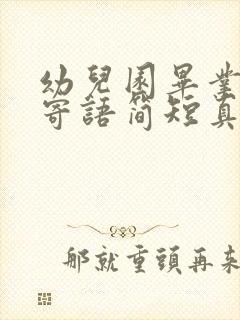 幼兒園畢業
寄語简短真
那就重頭再来